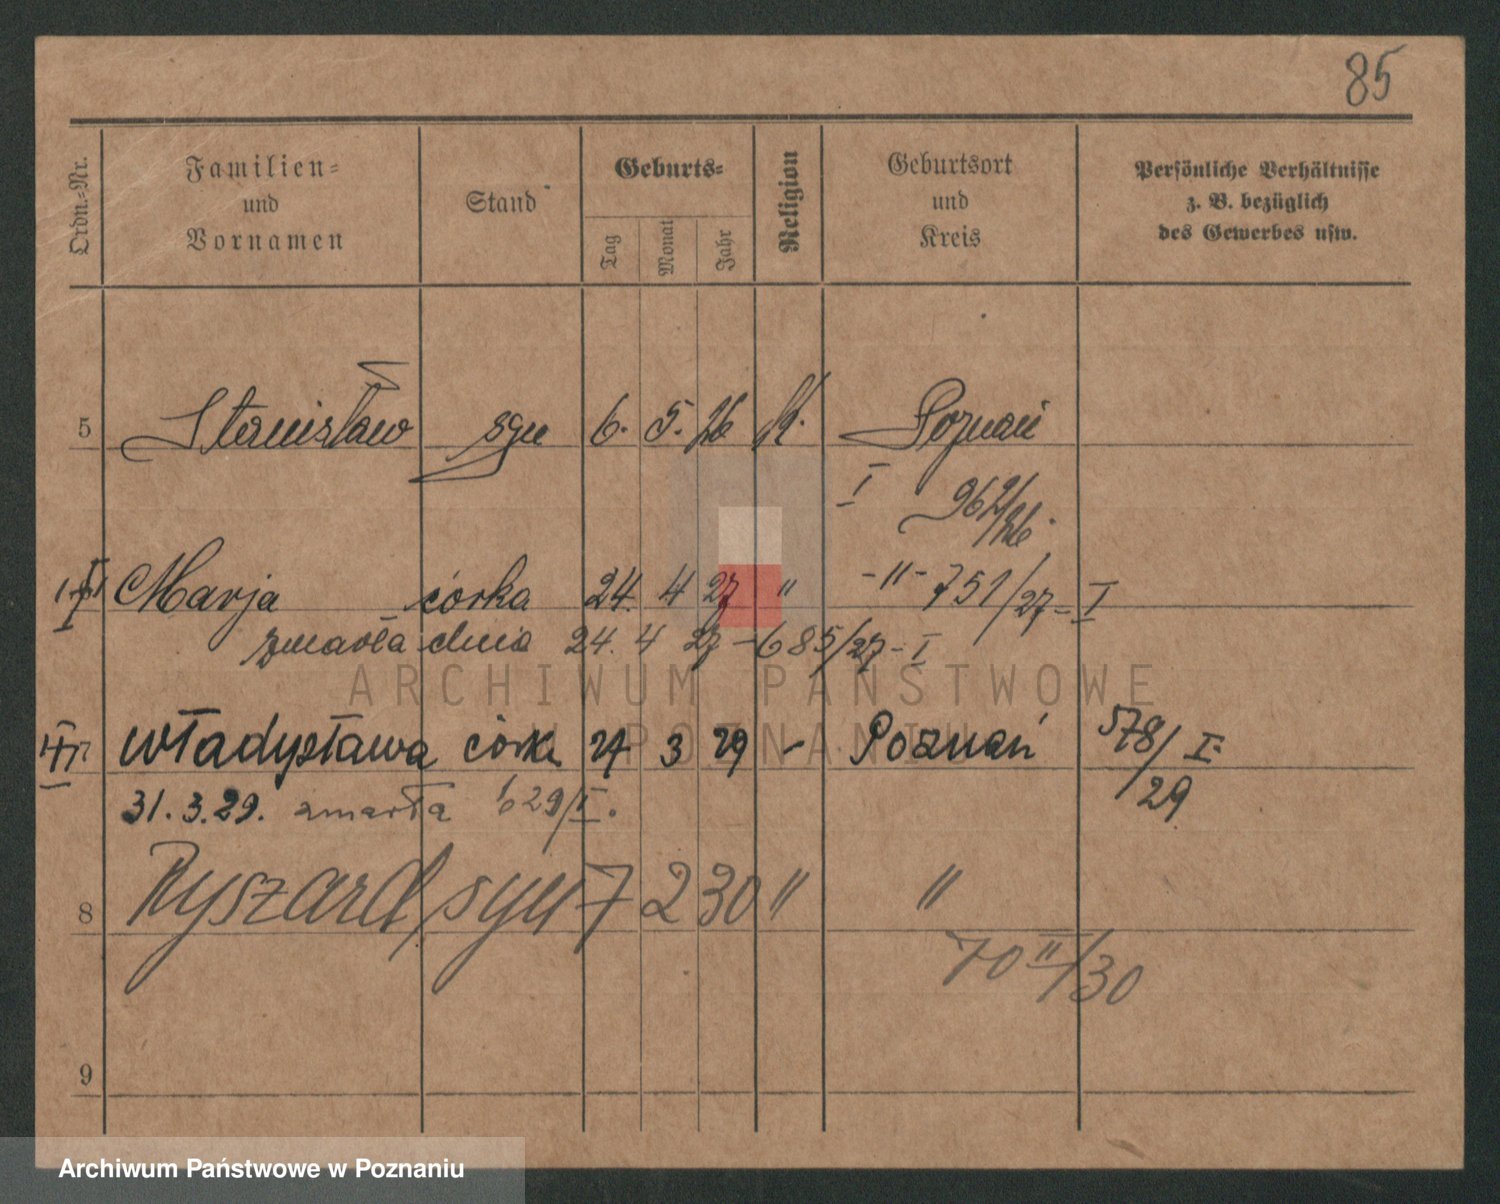 85
Ordn.-Nr.
Familien-
und
Vornamen
Stand
Geburts-
Tag
Monat
Jahr
Religion
Geburtsort
und
Kreis
Persönliche Verhältnisse
z. B. bezüglich
des Gewerbes usw.
5 Stanisław syn 6. 5. 26 k. Poznań
I 962/26
Marja córka 24. 4 27 " -"- 751/27-I
zmarła dnia 24. 4 27 - 685/27-I
Władysława córka 27 3 29 - Poznań 578/29 I
31.3.29. zmarła 629/I.
8 Ryszard syn 7 2 30 " "
70 II/30
9
ARCHIWUM PAŃSTWOWE
W POZNANIU
Archiwum Państwowe w Poznaniu